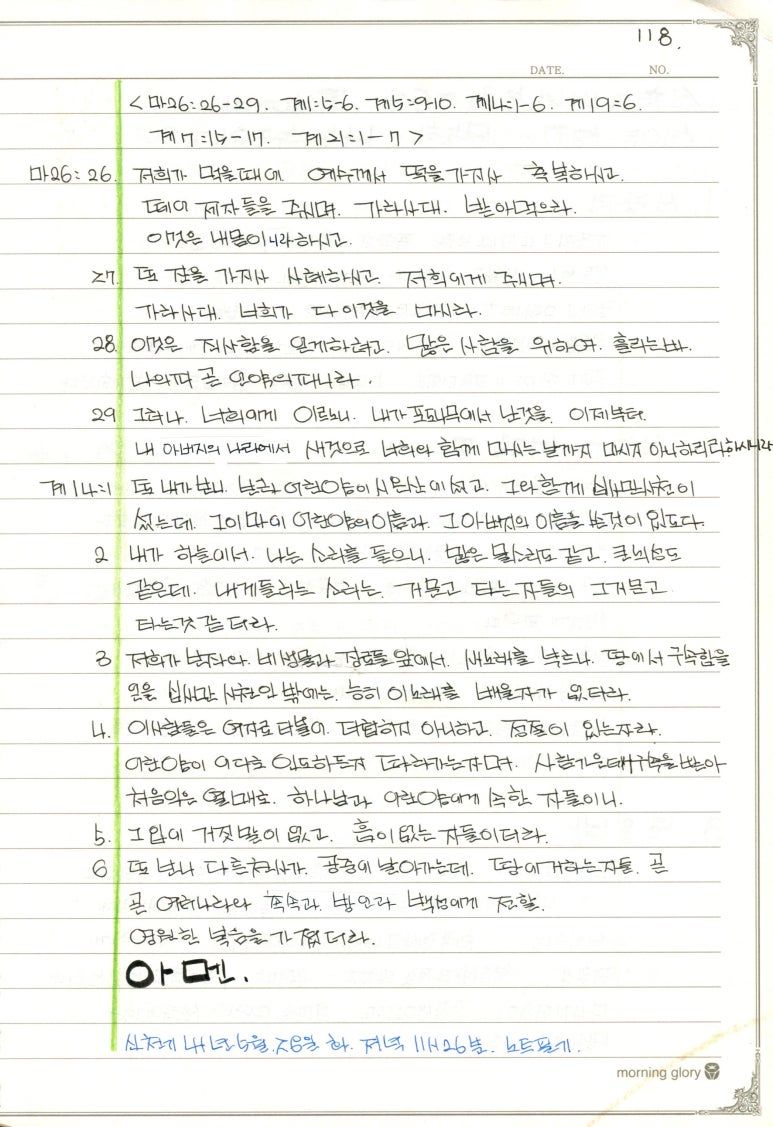 118.
DATE. NO.
<마26:26-29. 계1:5-6. 계5:9-10. 계14:1-6. 계19:6.
계7:15-17. 계21:1-7>
마26:26. 저희가 먹을때에 예수께서 떡을가지사 축복하시고.
떼어 제자들을 주시며. 가라사대. 받아먹으라.
이것은 내몸이니라하시고.
27. 또 잔을 가지사 사례하시고. 저희에게 주시며.
가라사대. 너희가 다이것을 마시라.
28. 이것은 죄사함을 얻게하려고. 많은 사람을 위하여. 흘리는바.
나의피 곧 언약의피니라.
29 그러나. 너희에게 이르노니. 내가포도나무에서 난것을. 이제부터.
내 아버지의 나라에서 새것으로 너희와 함께 마시는날까지 마시지 아니하리라하시니라
계14:1 또 내가보니. 보라 어린양이시온산에섰고. 그와함께 십사만사천이
섰는데. 그이마에 어린양의이름과. 그아버지의 이름을 쓴것이 있도다.
2 내가 하늘에서. 나는 소리를 들으니. 많은 물소리도 같고. 큰뇌성도
같은데. 내게들리는 소리는. 거문고 타는자들의 그거문고
타는것같더라.
3 저희가 보좌와. 네생물과 장로들 앞에서. 새노래를 부르니. 땅에서 구속함을
얻은 십사만 사천인 밖에는. 능히 이노래를 배울자가 없더라.
4. 이사람들은 여자로더불어. 더럽히지 아니하고. 정절이 있는자라.
어린양이 어디로 인도하든지 따라가는자며. 사람가운데서구속을받아
처음익은 열매로. 하나님과 어린양에게 속한 자들이니.
5. 그입에 거짓말이 없고. 흠이없는 자들이더라.
6 또 보니 다른천사가. 공중에 날아가는데. 땅에거하는자들. 곧
곧 여러나라와 족속과. 방언과 백성에게 전할.
영원한 복음을가졌더라.
아멘.
저녁 11시26분.
morning glory